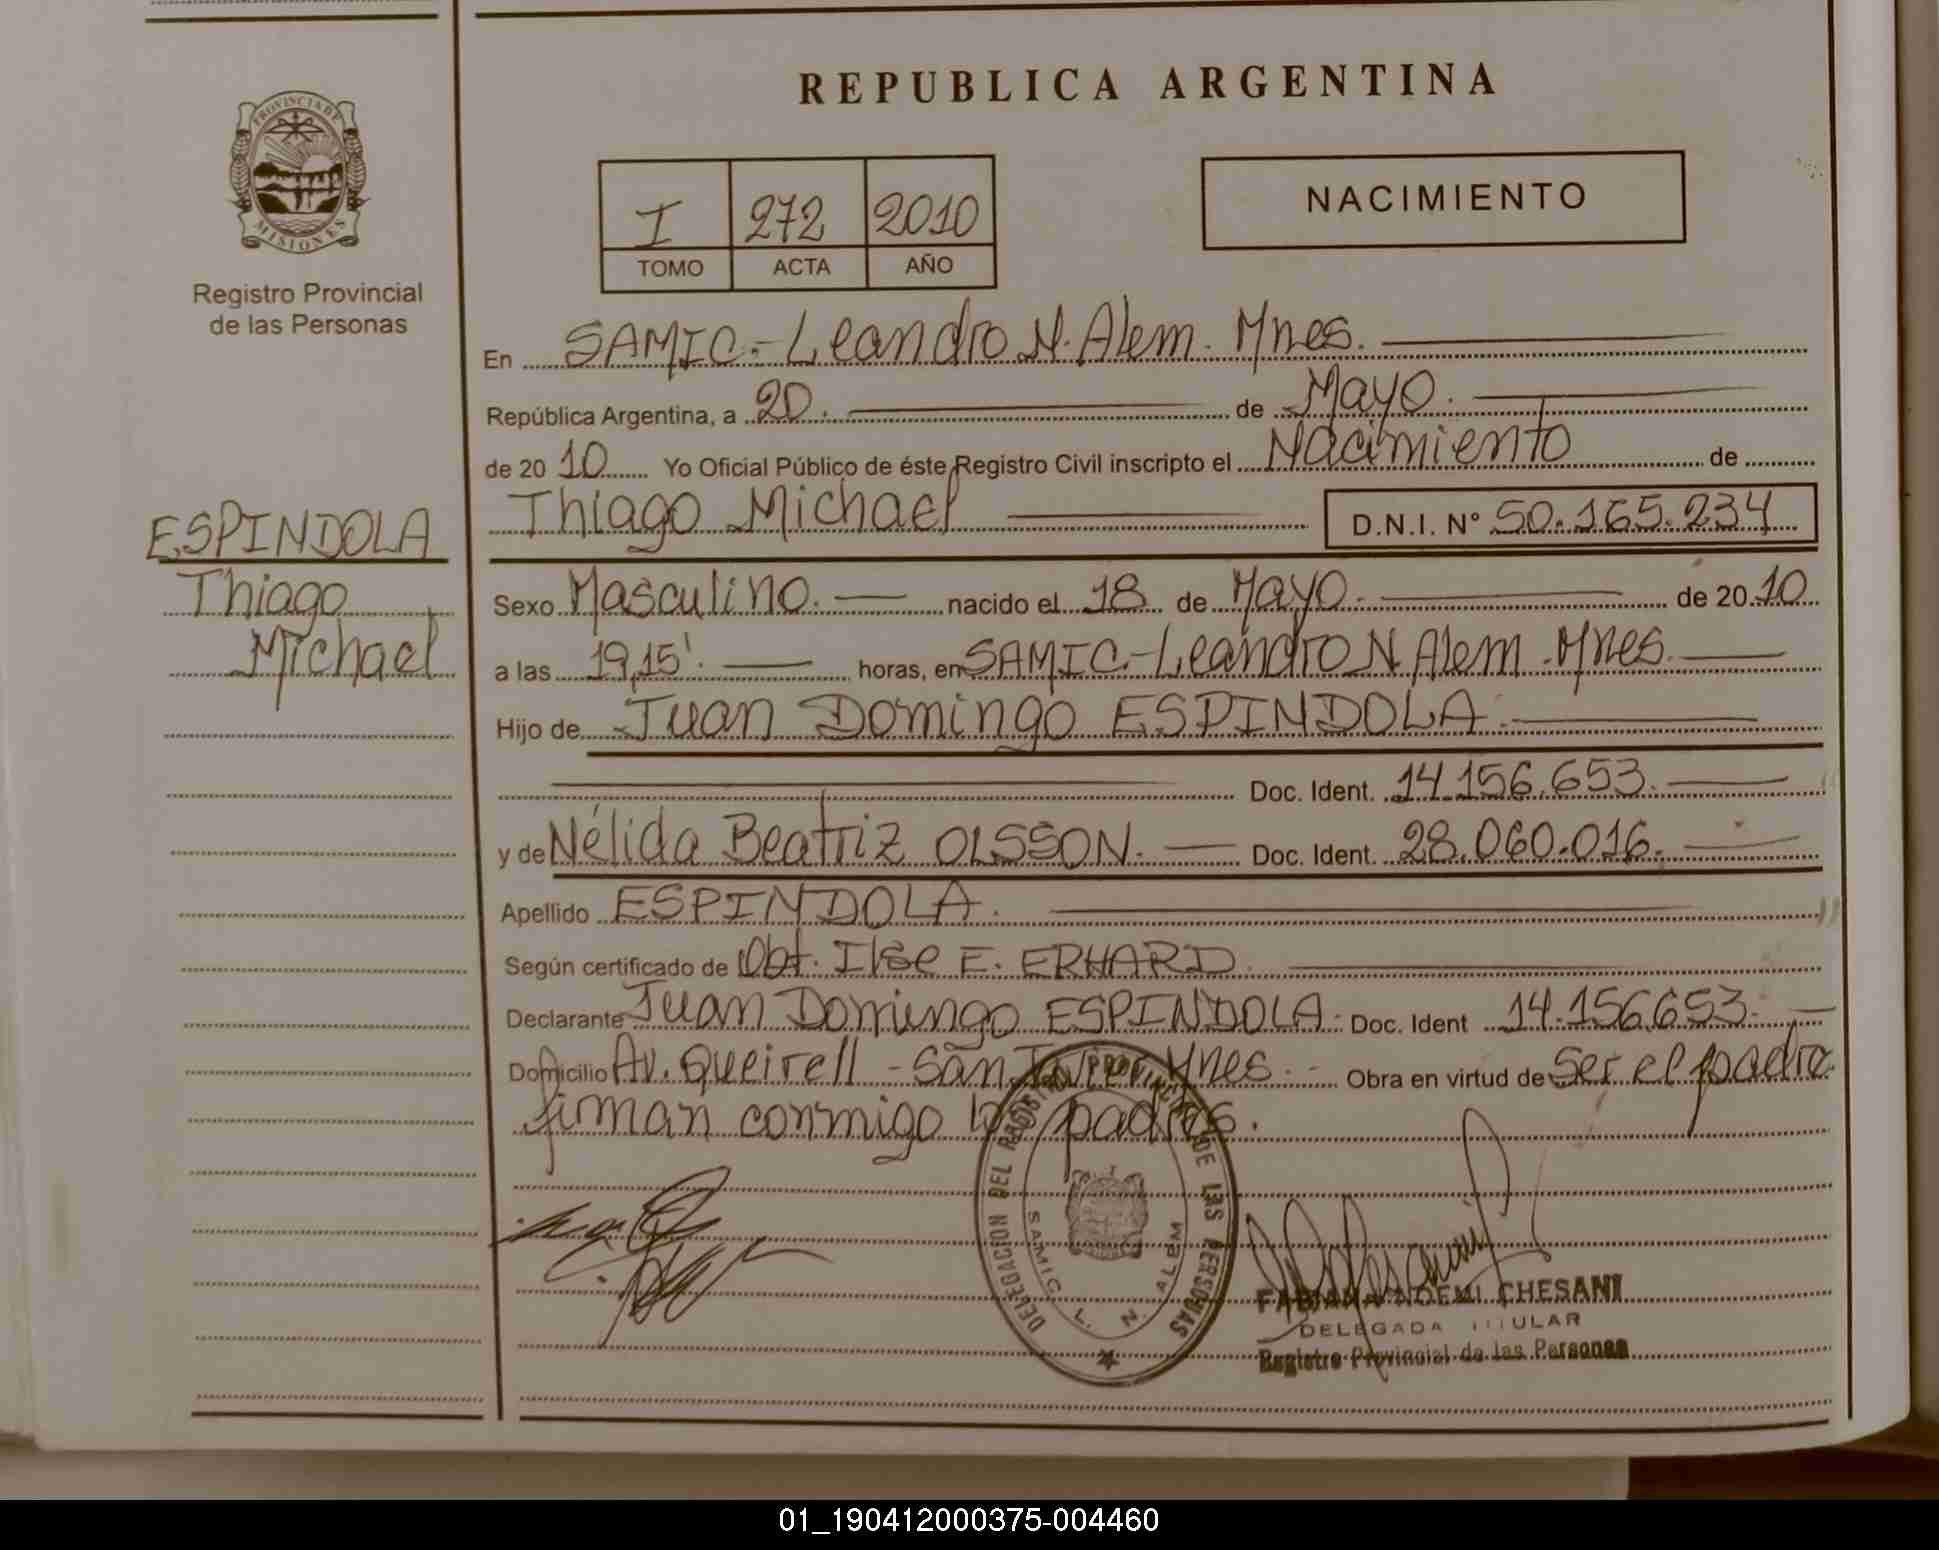 REPUBLICA ARGENTINA
PROVINCIA DE
MISIONES
Registro Provincial
de las Personas
I 272 2010
TOMO ACTA AÑO
NACIMIENTO
En SAMIC.- Leandro N. Alem. Mnes.
República Argentina, a 20. de Mayo.
de 20 10 Yo Oficial Público de éste Registro Civil inscripto el Nacimiento de
Thiago Michael D.N.I. N° 50.165.234
ESPINDOLA
Thiago
Michael
Sexo Masculino. nacido el 18 de Mayo. de 20 10
a las 19,15'. horas, en SAMIC.- Leandro N. Alem. Mnes.
Hijo de Juan Domingo ESPINDOLA.
Doc. Ident. 14.156.653.
y de Nélida Beatriz OLSSON. Doc. Ident. 28.060.016.
Apellido ESPINDOLA.
Según certificado de Obt. Ilse E. ERHARD.
Declarante Juan Domingo ESPINDOLA. Doc. Ident 14.156.653.
Domicilio Av. Queirell - San Javier Mnes. - Obra en virtud de Ser el padre
firman conmigo los padres.
DELEGACION DEL REGISTRO PROVINCIAL DE LAS PERSONAS
SAMIC. L. N. ALEM
FABIANA NOEMI CHESANI
DELEGADA TITULAR
Registro Provincial de las Personas
01_190412000375-004460